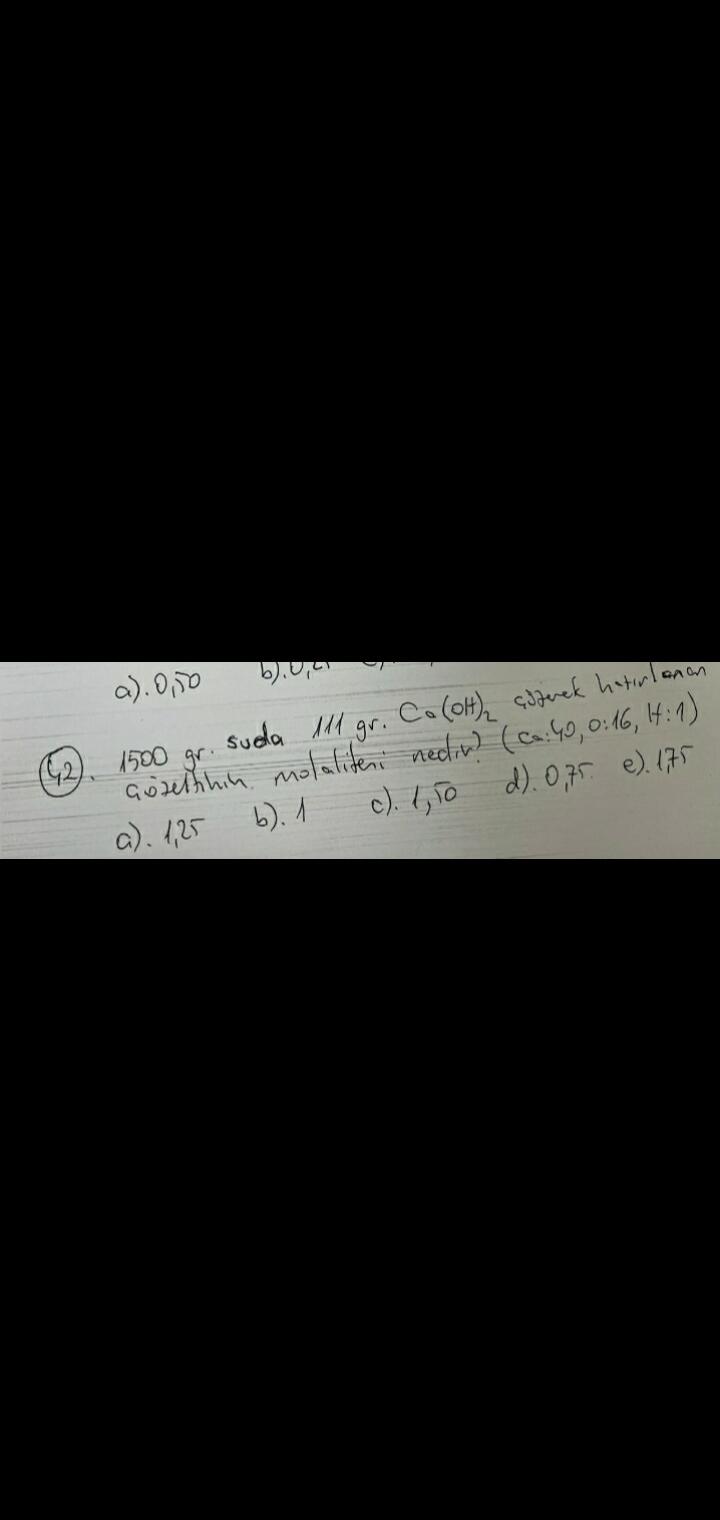 a). 0,50 b). 0,2
42. 1500 gr. suda 111 gr. Ca(OH)2 çözerek hazırlanan
çözeltinin molalitesi nedir? (Ca:40, O:16, H:1)
a). 1,25 b). 1 c). 1,50 d). 0,75 e). 1,75